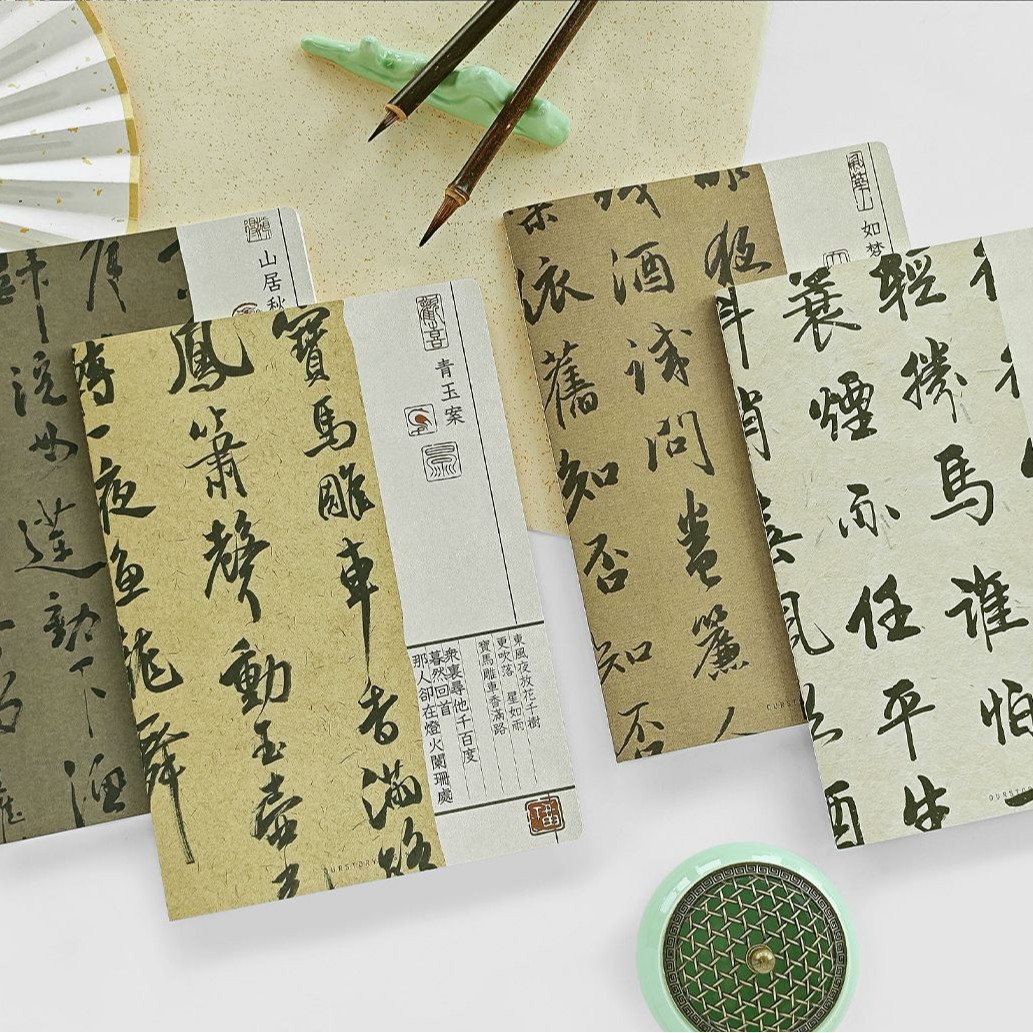 山居秋
浣女蓮動下漁
青玉案
寶馬雕車香滿路
鳳簫聲動玉壺
轉一夜魚龍舞
東風夜放花千樹
更吹落 星如雨
寶馬雕車香滿路
衆裏尋他千百度
暮然回首
那人卻在燈火闌珊處
OURSTORY
如夢
殘酒試問卷簾人
棠依舊知否知否
輕勝馬誰怕
蓑煙雨任平生
OURSTORY